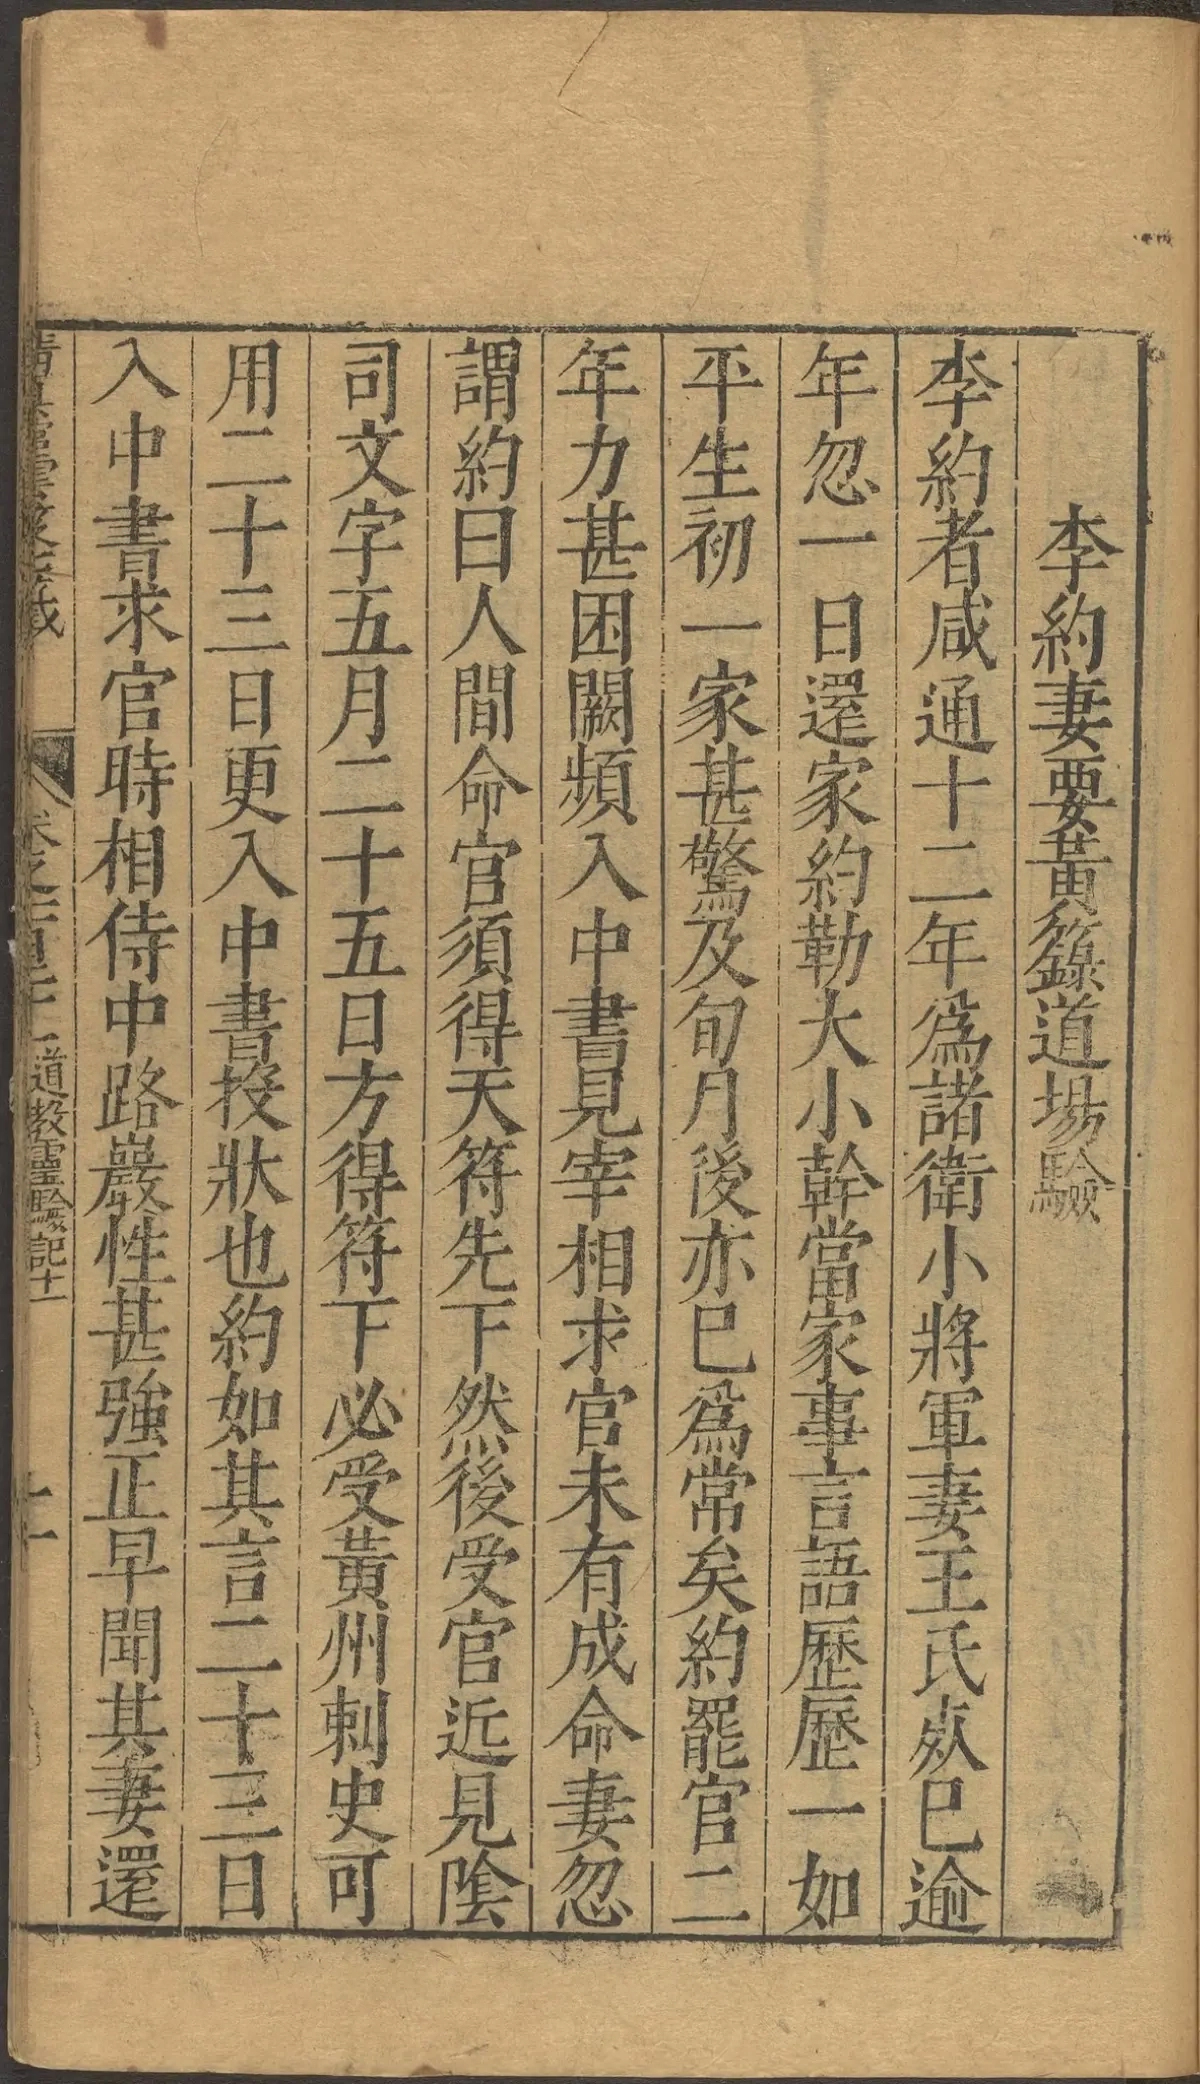 李約妻要黃籙道場驗
李約者咸通十二年爲諸衛小將軍妻王氏歿巳逾
年忽一日還家約勒大小幹當家事言語歷歷一如
平生初一家甚驚及旬月後亦巳爲常矣約罷官二
年力甚困闕頻入中書見宰相求官未有成命妻忽
謂約曰人間命官須得天符先下然後受官近見陰
司文字五月二十五日方得符下必受黃州刺史可
用二十三日更入中書投狀也約如其言二十三日
入中書求官時相侍中路巖性甚強正早聞其妻還
雲笈七籤
卷之一百二十一
道教靈驗記十一